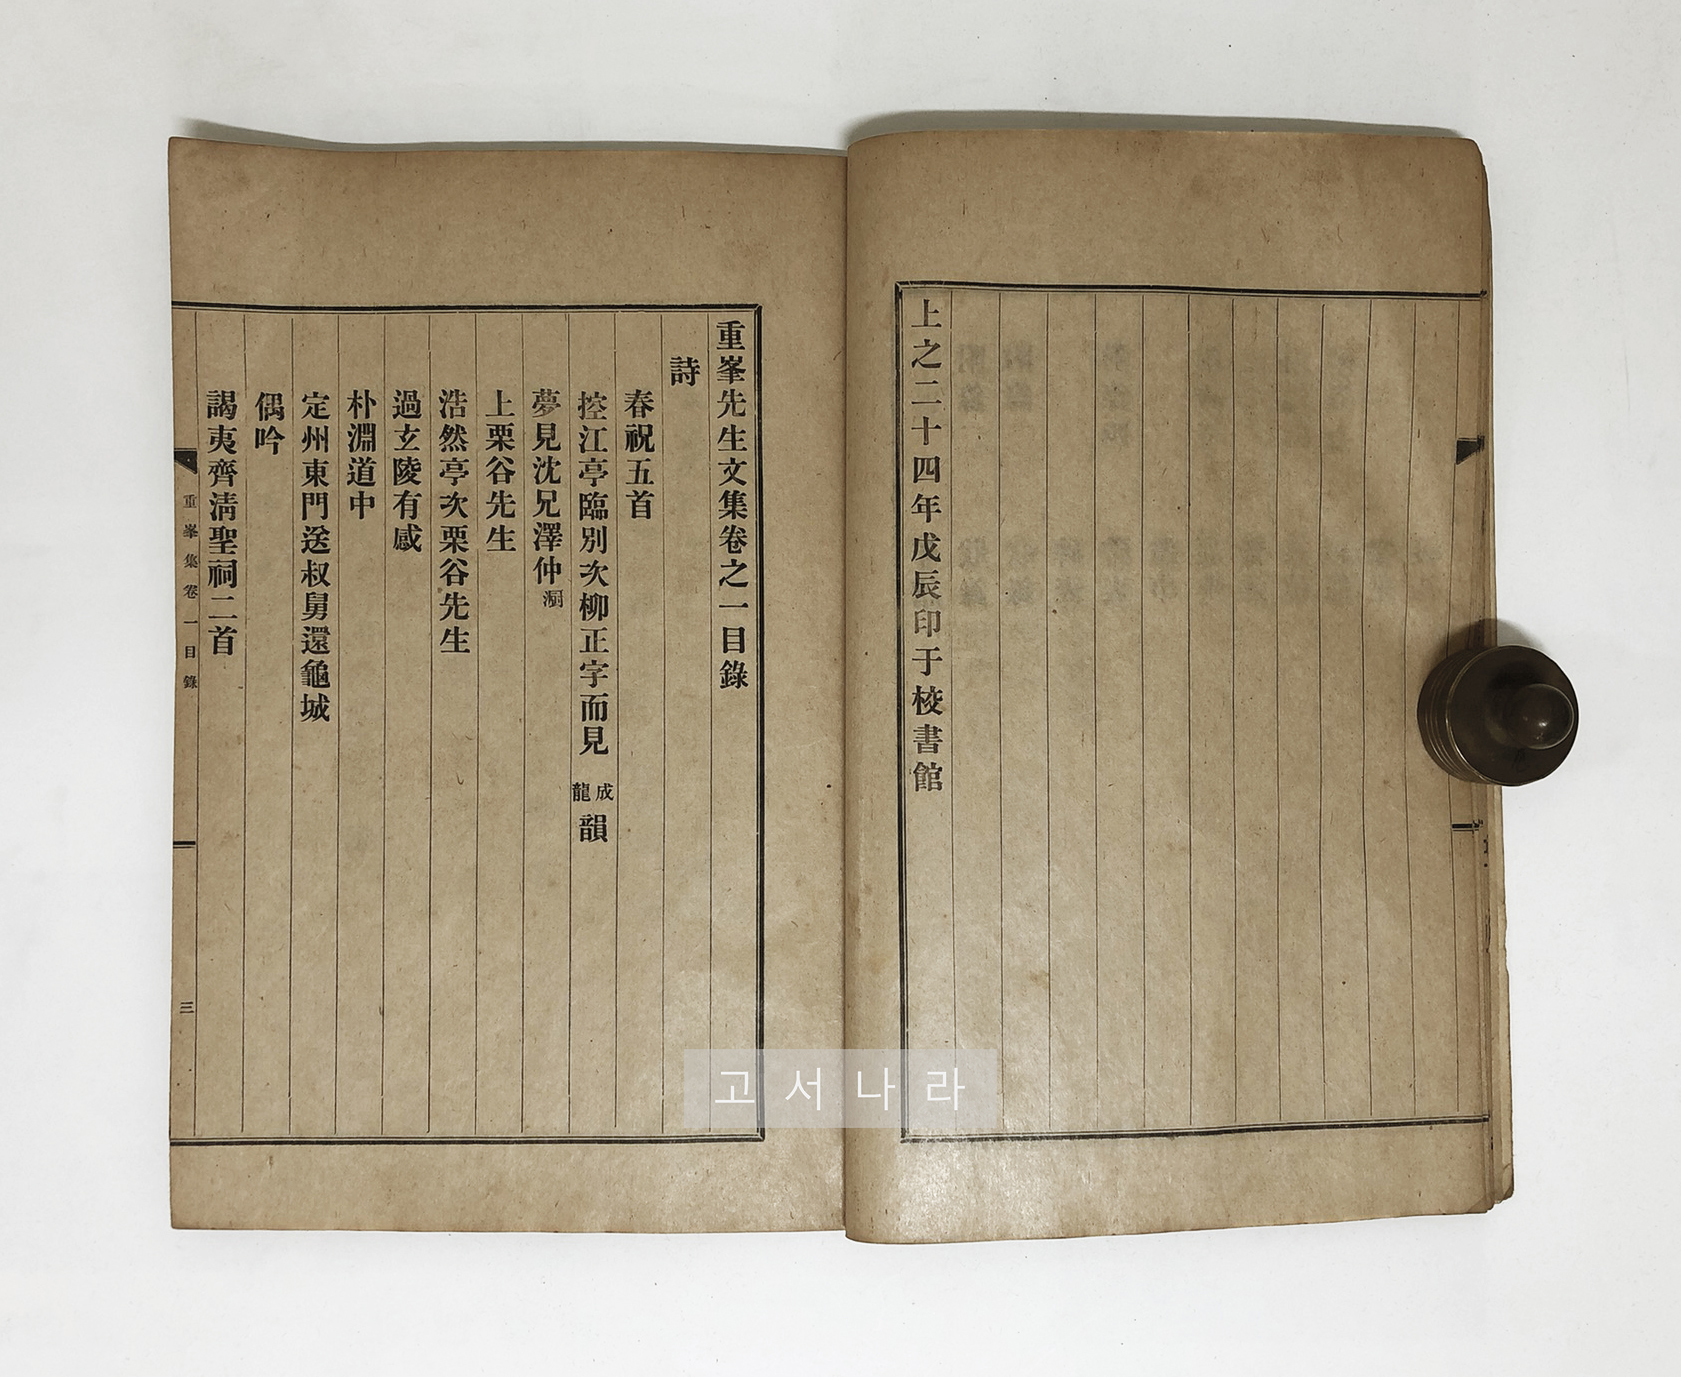 上之二十四年戊辰印于校書館
重峯先生文集卷之一目錄
詩
春祝五首
控江亭臨別次柳正字而見成龍韻
夢見沈兄澤仲
上栗谷先生
浩然亭次栗谷先生
過玄陵有感
朴淵道中
定州東門送叔舅還龜城
偶吟
謁夷齊淸聖祠二首
重峯集卷一目錄
三
고서나라